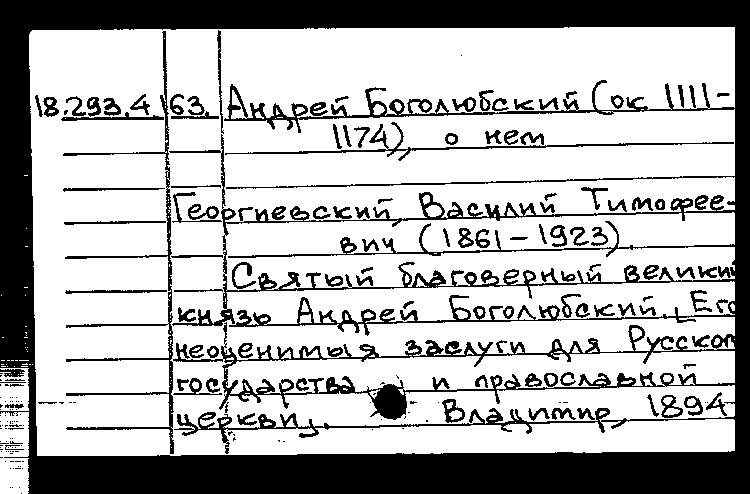 18.293.4.163. Андрей Боголюбский (ок 1111-
1174), о нем
Георгиевский, Василий Тимофее-
вич (1861-1923).
Святый благоверный велики
князь Андрей Боголюбский. [Его
неоценимыя заслуги для Русског
государства и православной
церкви].  Владимир, 1894